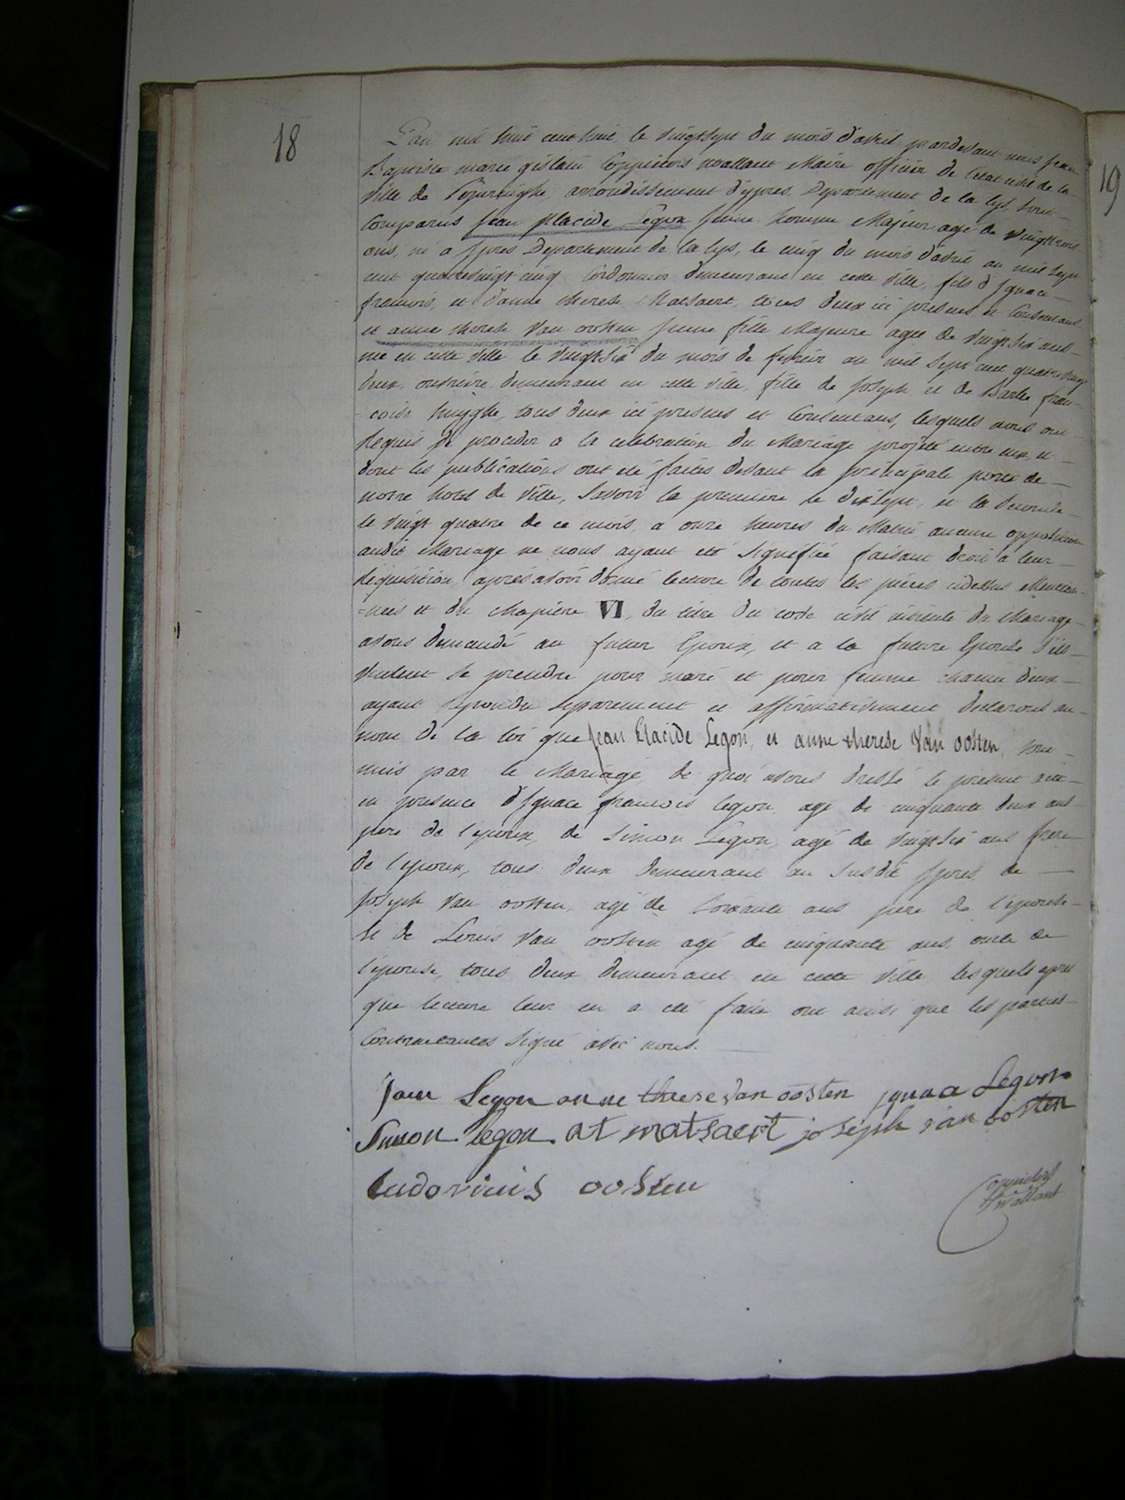 18
19
L'an mil huit cent huit, le vingtsept du mois d'avril pardevant nous Jean
Baptiste marie gislain Coppieters wallant Maire officier de l'etat civil de la
ville de Poperinghe, arrondissement d'ypres, Departement de la Lys, sont
Comparus Jean placide Legon jeune homme Majeur agé de vingttrois
ans, né a Ypres Departement de la lys, le cinq du mois d'avril an mil sept
cent quatrevingt cinq Cordonnier demeurant en cette ville, fils d'Ignace
francois, et d'anne therese Matsaert, tous deux ici presens et Consentans
et anne therese Van oosten jeune fille Majeure agée de vingtsix ans
née en cette ville le vingtsix du mois de fevrier an mil sept cent quatrevingt
deux, ouvriere, demeurant en cette ville, fille de Joseph et de Barbe fran-
-coise huyghe, tous deux ici presens et Consentans, lesquels nous ont
requis de proceder a la celebration du Mariage projeté entre eux, et
dont les publications ont été faites devant la principale porte de
notre hotel de ville, Savoir la premiere le dixsept, et la Seconde
le vingt quatre de ce mois, a onze heures du Matin aucune opposition
audit Mariage ne nous ayant été Signifiée faisant droit a leur
requisition, après avoir donné lecture de toutes les pieces cidessus Mention-
-nées et du chapitre VI du titre du code civil intitulé du Mariage
avons demandé au futur Epoux, et a la future Epouse S'ils
veulent se prendre pour mari et pour femme chacun deux
ayant repondu separement et affirmativement declarons au
nom de la loi que Jean Placide Legon, et anne therese Van oosten, sont
unis par le Mariage de quoi avons dressé le present acte
en presence d'Ignace francois legon agé de cinquante deux ans
pere de l'epoux, de Simon Legon, agé de vingtsix ans frere
de l'epoux, tous deux demeurant au susdit Ypres, de
Joseph Van oosten, agé de Soixante ans pere de l'epouse
et de Louis Van oosten agé de cinquante ans, oncle de
l'epouse, tous deux demeurant en cette ville, lesquels après
que lecture leur en a été faite ont ainsi que les parties
Contractantes Signé avec nous.
Jean Legon anne therese van oosten ignaa Legon
Simon legon at matsaert joseph van oosten
Ludovicus oosten
Coppieters
wallant